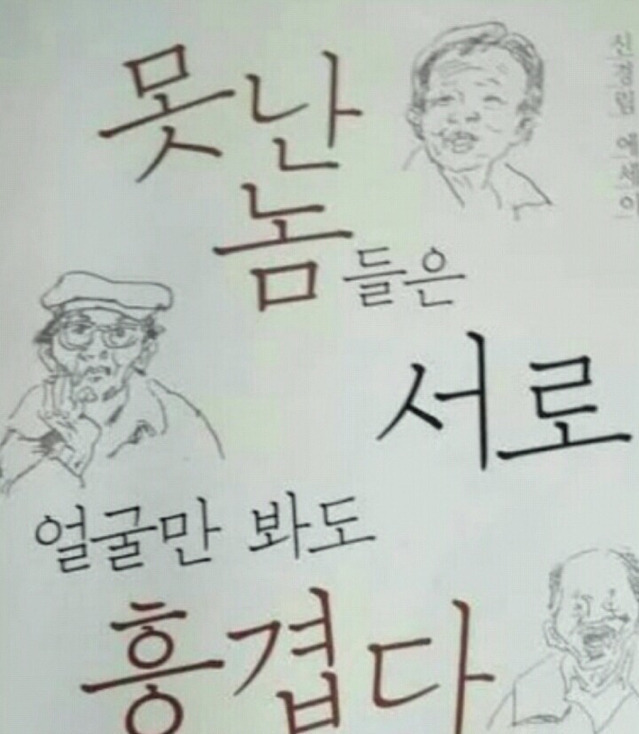 못난
놈들은
서로
얼굴만 봐도
흥겹다
신경림 에세이